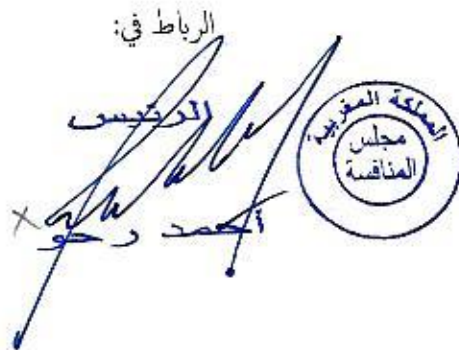 الرباط في:
الرئيس
أحمد رحو
المملكة المغربية
مجلس
المنافسة